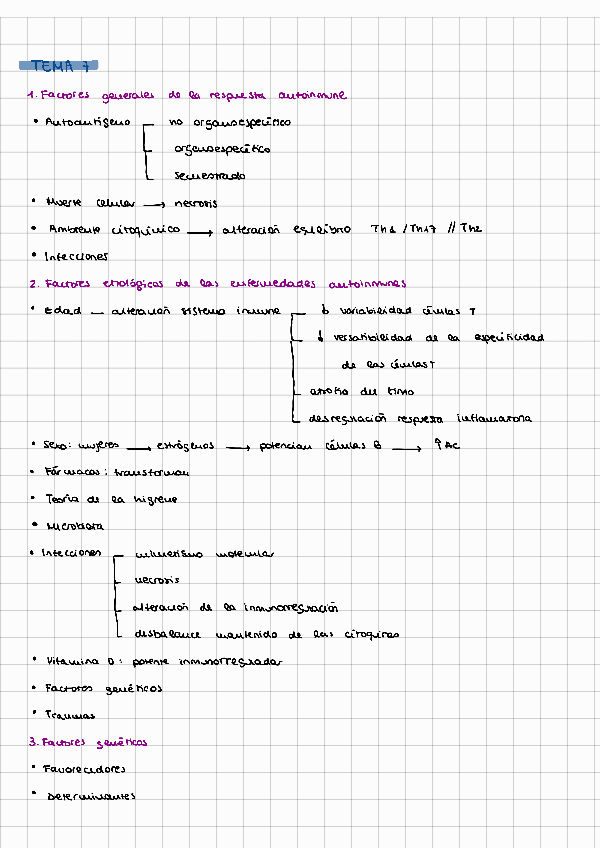 TEMA 7
1. Factores generales de la respuesta autoinmune
• Autoantígeno no organoespecífico
organoespecífico
secuestrado
• Muerte celular → necrosis
• Ambiente citoquínico → alteración equilibrio Th1 / Th17 // Th2
• Infecciones
2. Factores etiológicos de las enfermedades autoinmunes
• Edad — alteración sistema inmune ↓ variabilidad células T
↓ versatibilidad de la especificidad
de las células T
atrofia del timo
desregulación respuesta inflamatoria
• Sexo: mujeres → estrógenos → potencian células B → ↑ Ac
• Fármacos: transforman
• Teoría de la higiene
• Microbiota
• Infecciones mimetismo molecular
necrosis
alteración de la inmunorregulación
desbalance mantenido de las citoquinas
• Vitamina D: potente inmunorregulador
• Factores genéticos
• Traumas
3. Factores genéticos
• Favorecedores
• Determinantes